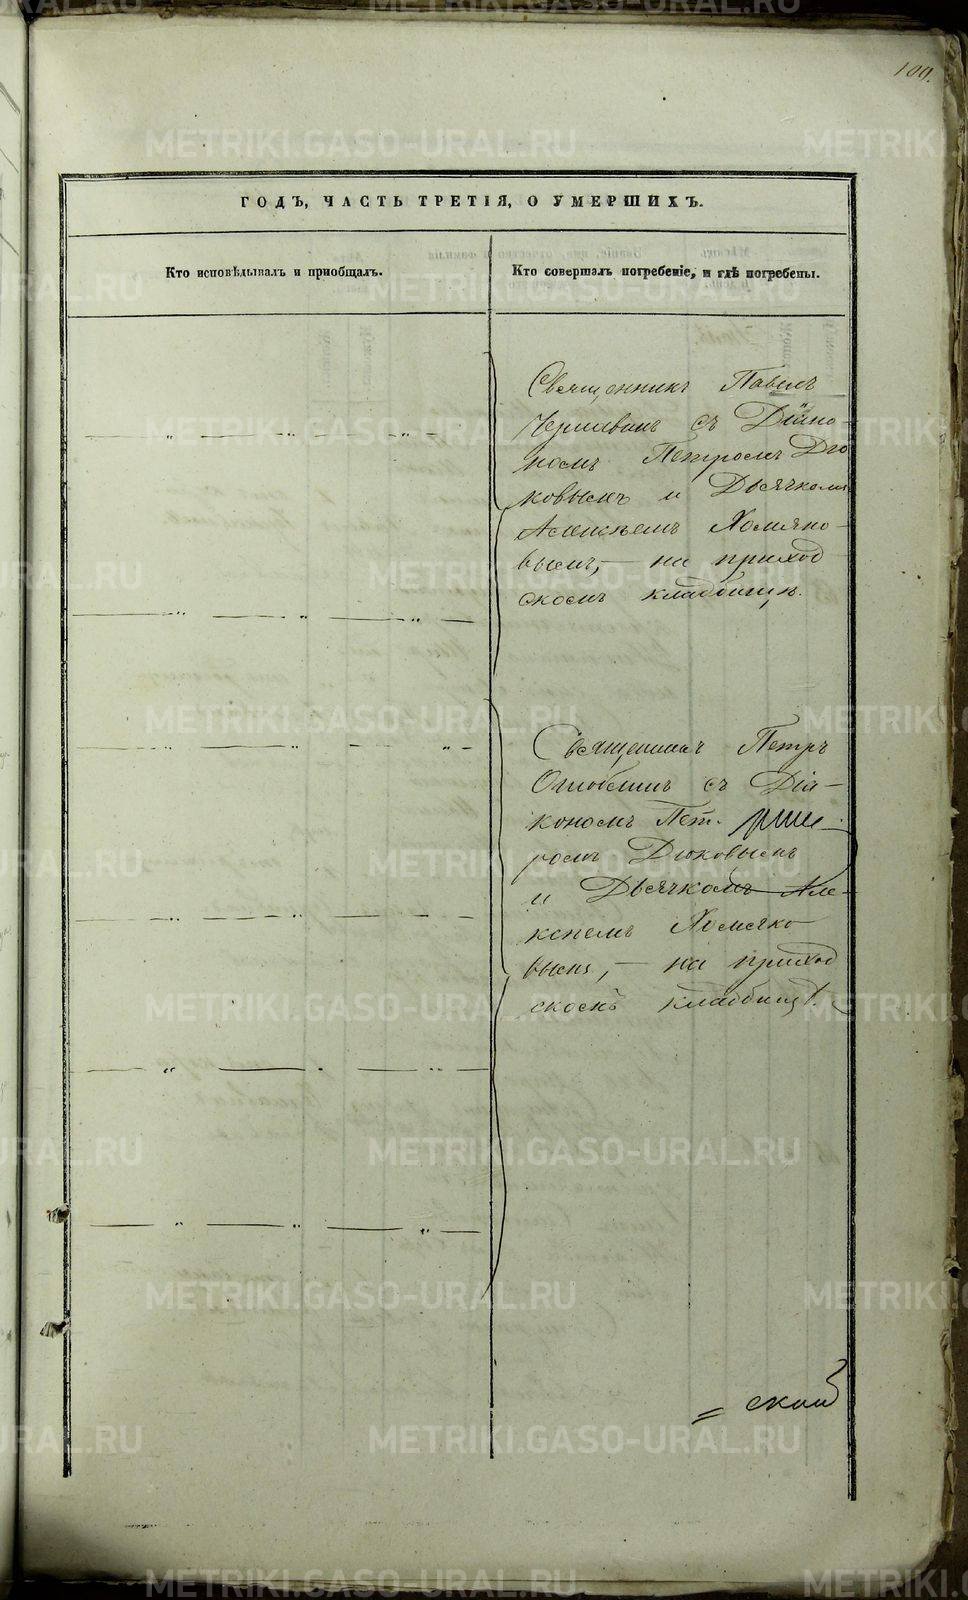 100.
ГОДЪ, ЧАСТЬ ТРЕТІЯ, О УМЕРШИХЪ.
Кто исповѣдывалъ и пріобщалъ.
Кто совершалъ погребеніе, и гдѣ погребены.
Священникъ Павелъ
съ Діако-
номъ Петромъ Дю
ковымъ и Дьячкомъ
Алексѣемъ Хомяко-
вымъ, – на приход
скомъ кладбищѣ.
Священникъ Петръ
съ Діа-
кономъ Пет.
ромъ Дюковымъ
и Дьячкомъ Але-
ксѣемъ Хомяко
вымъ, – на приход
скомъ кладбищѣ.
METRIKI.GASO-URAL.RU